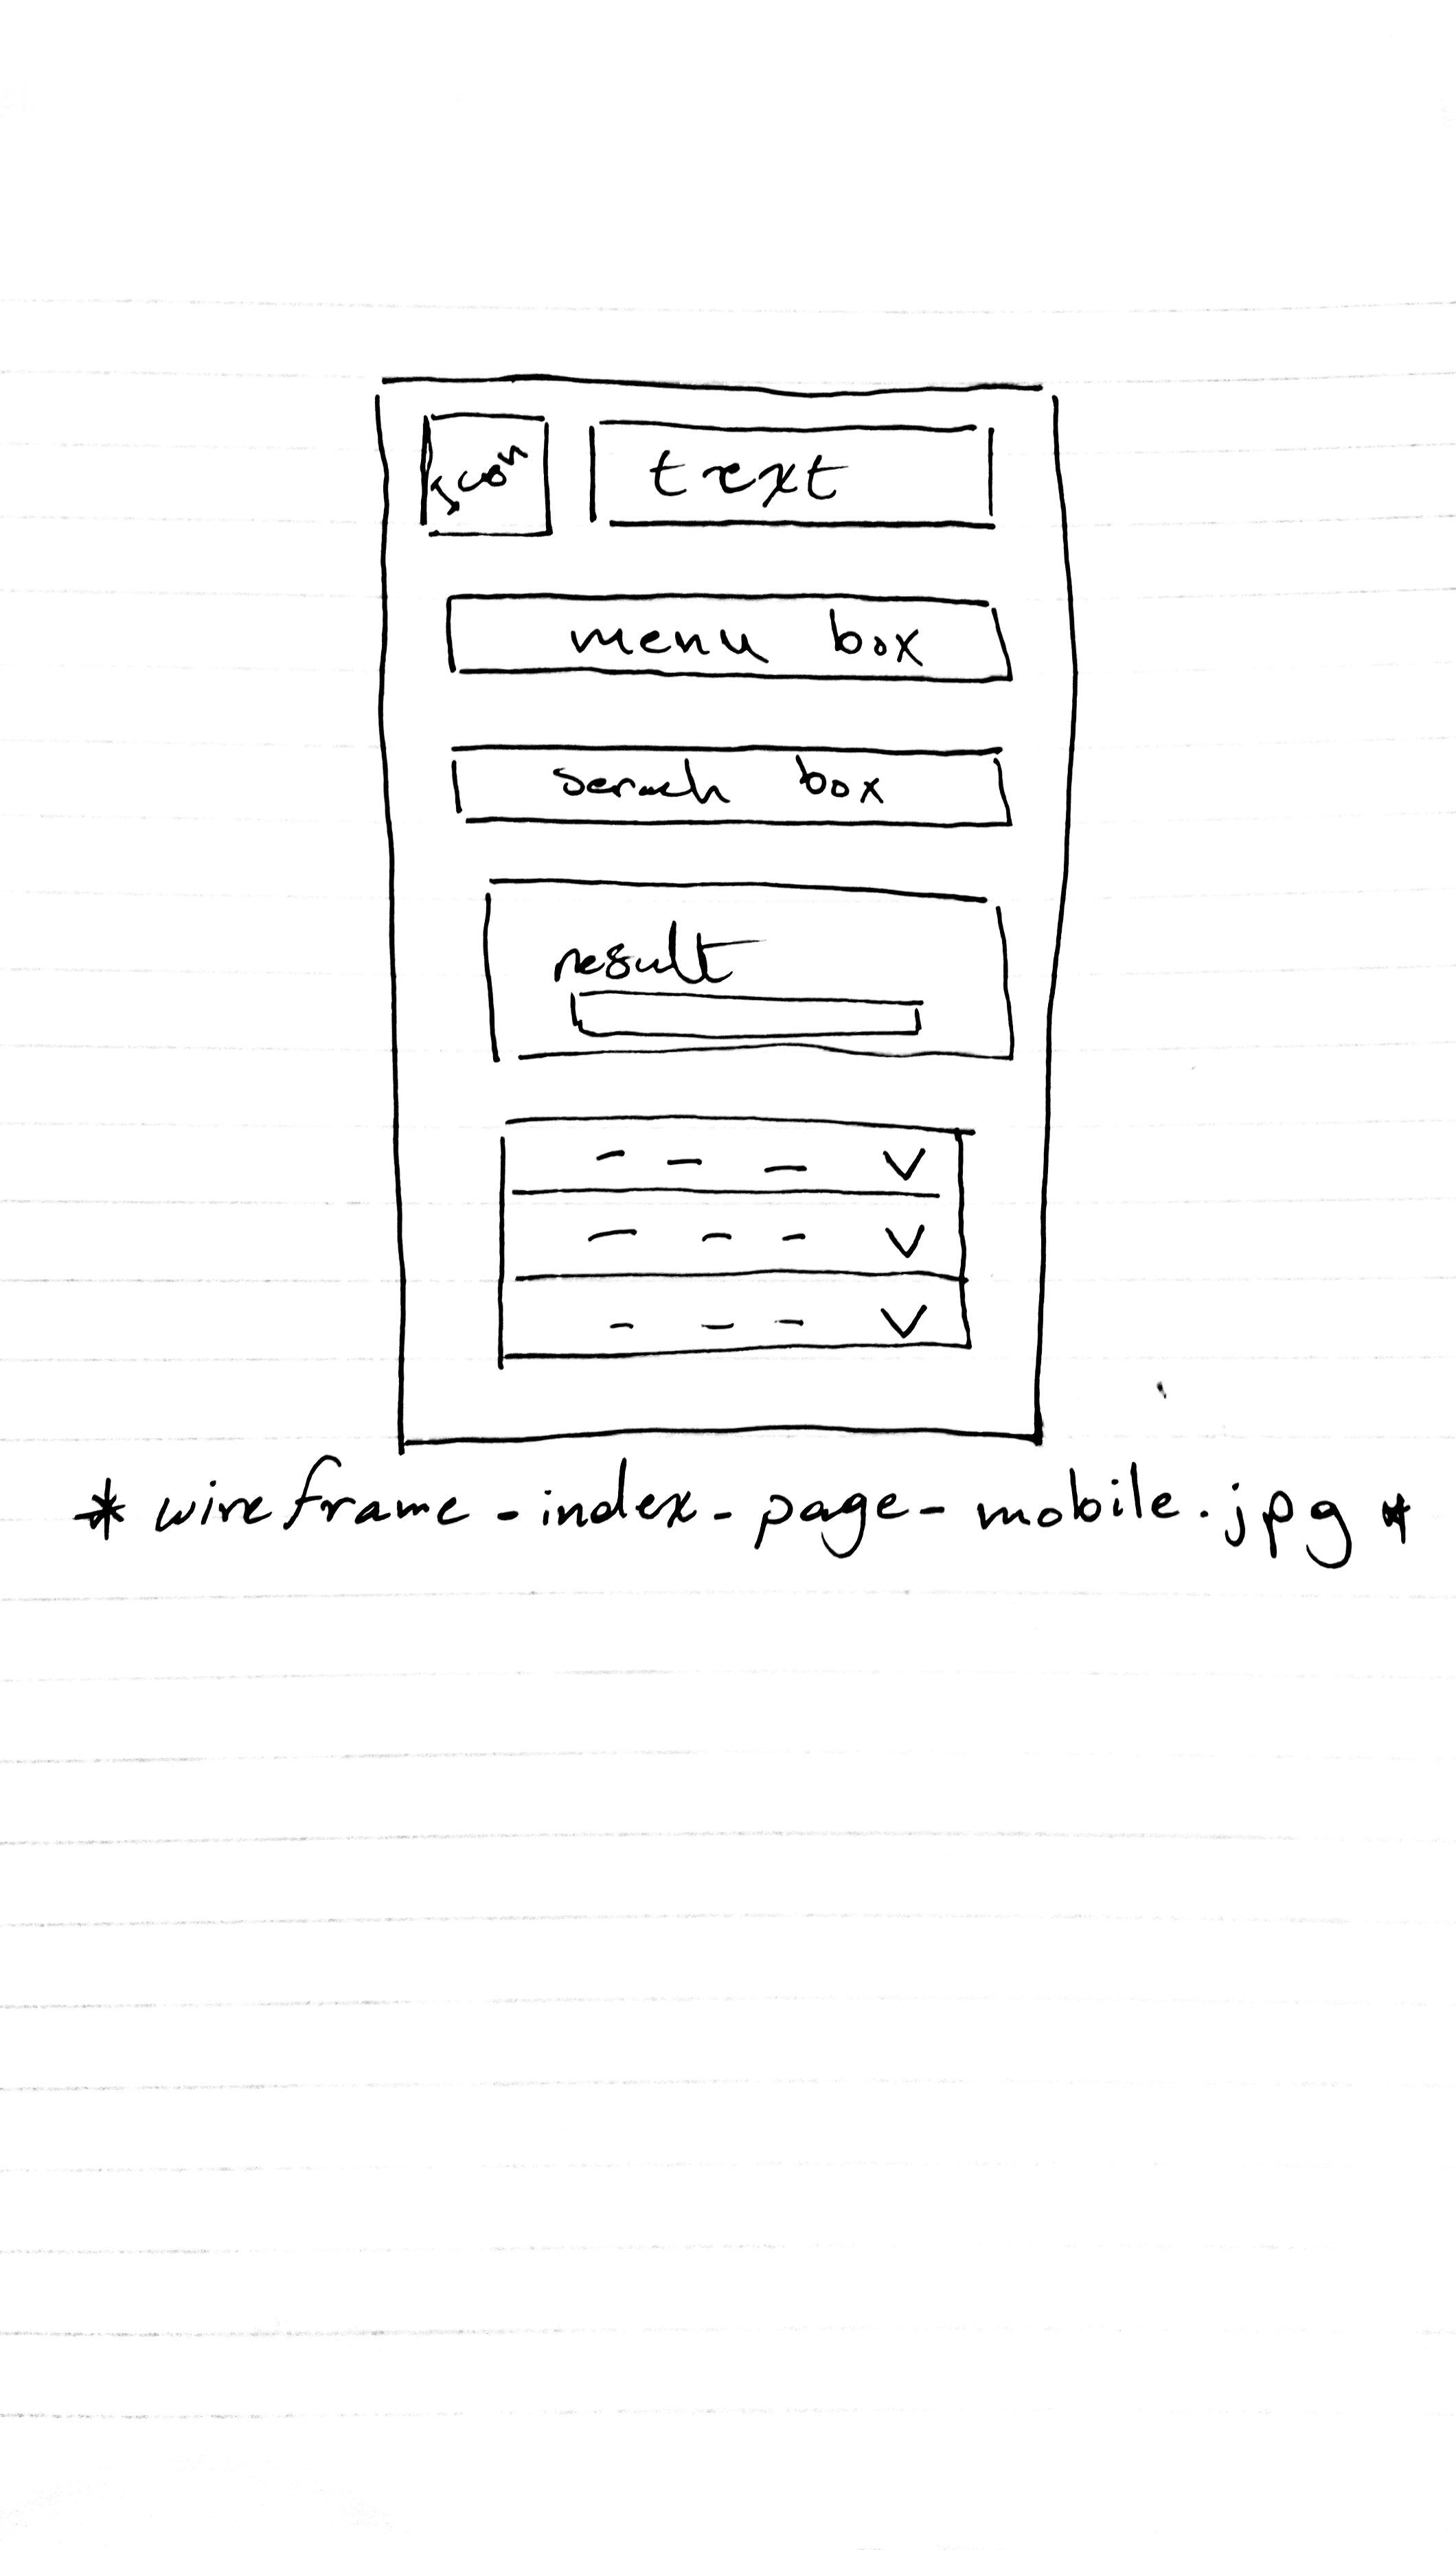 Icon
text
menu box
serach box
result
- - - V
- - - V
- - - V
* wireframe-index-page-mobile.jpg *